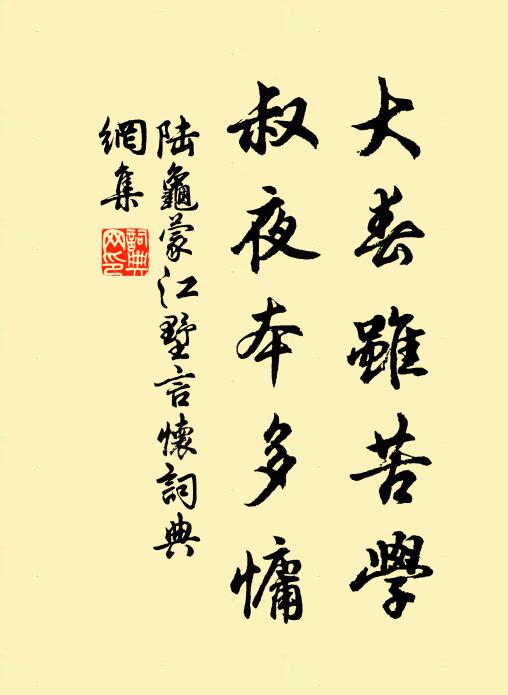 大春雖苦學
叔夜本多慵
陸龜蒙江墅言懷詞典
網集
詞典網印